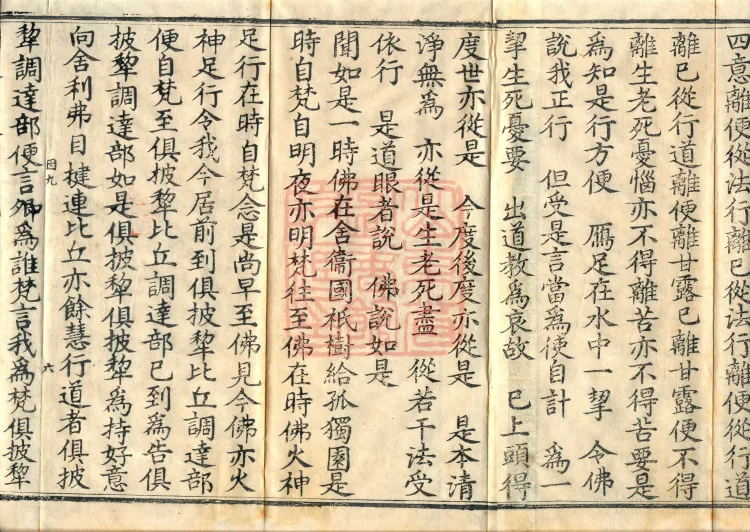 四意離便從法行離已從法行離便從行道
離已從行道離便離甘露已離甘露便不得
離生老死憂惱亦不得離苦亦不得苦要是
為知是行方便 鴈足在水中一挈 令佛
說我正行 但受是言當為使自計 為一
挈生死憂要 出道教為哀故 已上頭得
度世亦從是 今度後度亦從是 是本清
淨無為 亦從是生老死盡 從若干法受
依行 是道眼者說 佛說如是
聞如是一時佛在舍衞國祇樹給孤獨園是
時自梵自明夜亦明梵往至佛在時佛火神
足行在時自梵念是尚早至佛見今佛亦火
神足行令我今居前到俱披犂比丘調達部
便自梵至俱披犂比丘調達部已到為告俱
披犂調達部如是俱披犂俱披犂為持好意
向舍利弗目揵連比丘亦餘慧行道者俱披
因九 六
犂調達部便言卿為誰梵言我為梵俱披犂